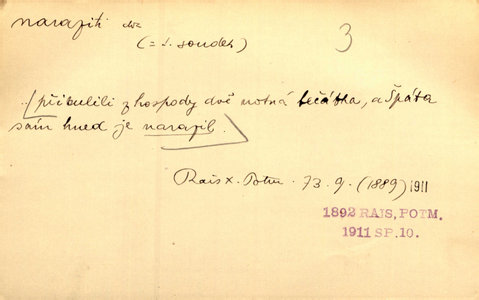 naraziti dk.
(= l. soudek)
3
přikulili z hospody dvě notná bečátka, a Špáta
sám hned je narazil.
Rais x. Potm. 73. 9. (1889) 1911
1892 RAIS, POTM.
1911 SP. 10.